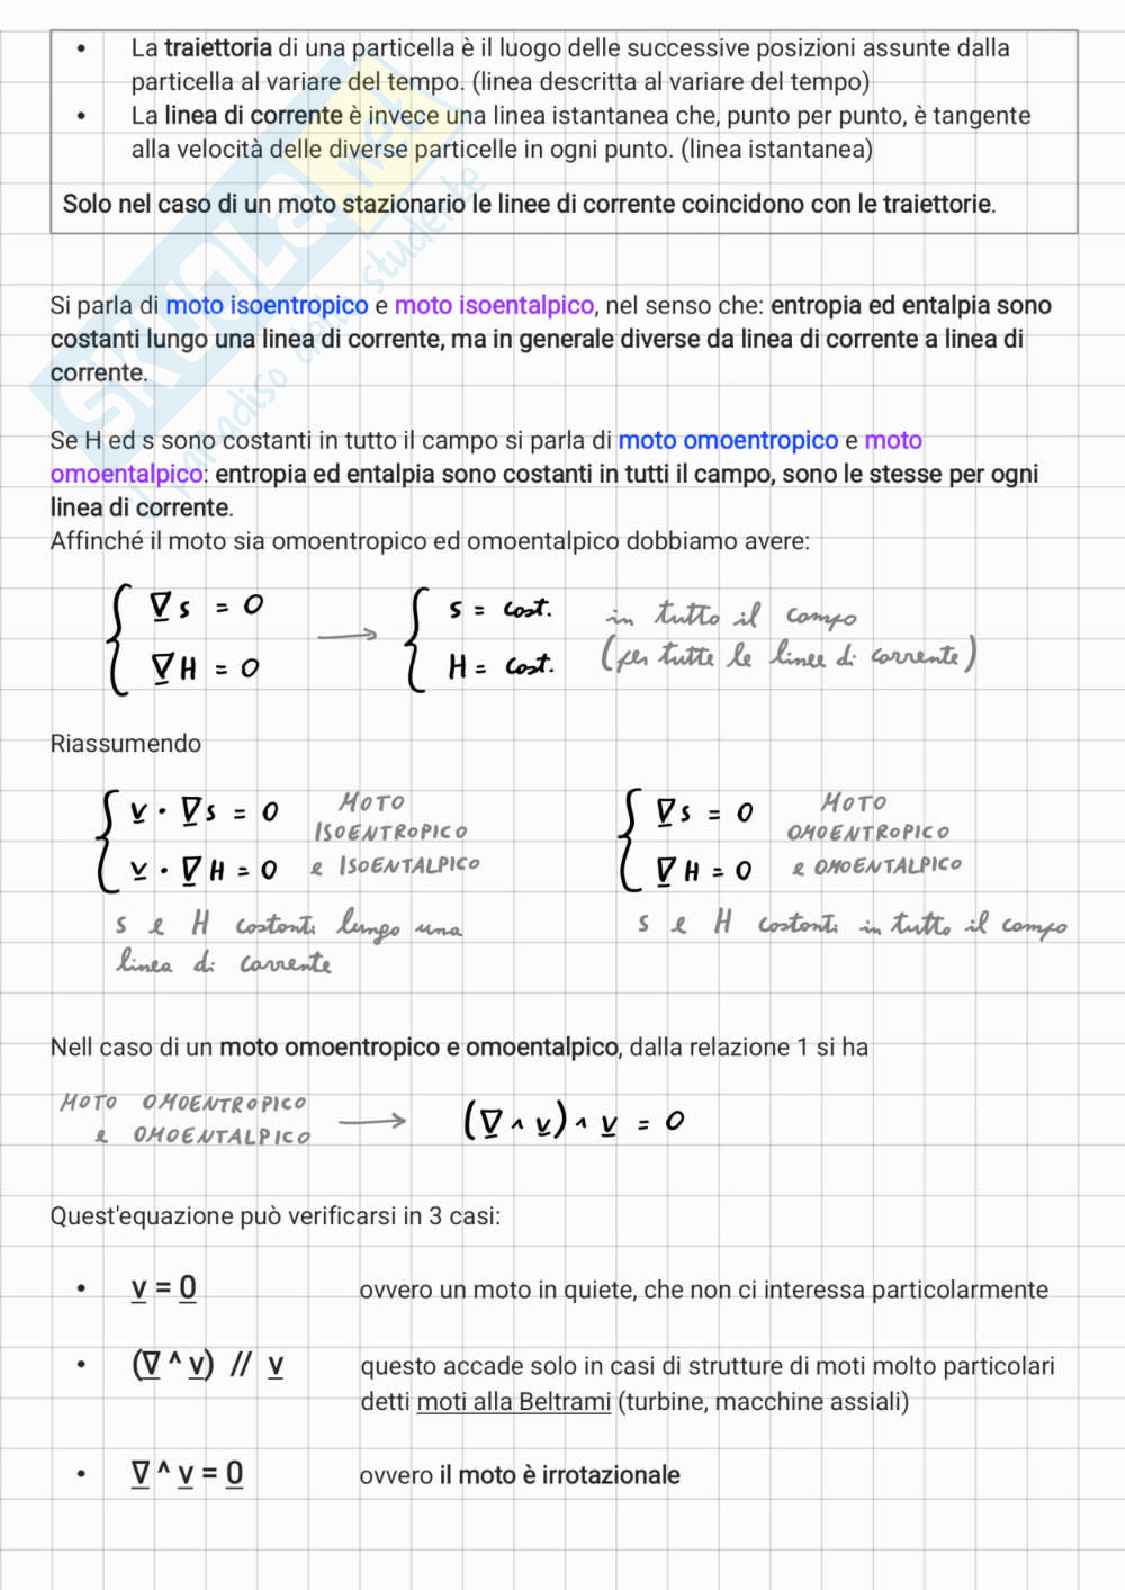 • La traiettoria di una particella è il luogo delle successive posizioni assunte dalla
particella al variare del tempo. (linea descritta al variare del tempo)
• La linea di corrente è invece una linea istantanea che, punto per punto, è tangente
alla velocità delle diverse particelle in ogni punto. (linea istantanea)
Solo nel caso di un moto stazionario le linee di corrente coincidono con le traiettorie.
Si parla di moto isoentropico e moto isoentalpico, nel senso che: entropia ed entalpia sono
costanti lungo una linea di corrente, ma in generale diverse da linea di corrente a linea di
corrente.
Se H ed s sono costanti in tutto il campo si parla di moto omoentropico e moto
omoentalpico: entropia ed entalpia sono costanti in tutti il campo, sono le stesse per ogni
linea di corrente.
Affinché il moto sia omoentropico ed omoentalpico dobbiamo avere:
∇s = 0 → s = cost. in tutto il campo
∇H = 0 H = cost. (per tutte le linee di corrente)
Riassumendo
v · ∇s = 0 MOTO ISOENTROPICO ∇s = 0 MOTO OMOENTROPICO
v · ∇H = 0 e ISOENTALPICO ∇H = 0 e OMOENTALPICO
s e H costanti lungo una s e H costanti in tutto il campo
linea di corrente
Nell caso di un moto omoentropico e omoentalpico, dalla relazione 1 si ha
MOTO OMOENTROPICO
e OMOENTALPICO → (∇ ∧ v) ∧ v = 0
Quest'equazione può verificarsi in 3 casi:
• v = 0 ovvero un moto in quiete, che non ci interessa particolarmente
• (∇ ^ v) // v questo accade solo in casi di strutture di moti molto particolari
detti moti alla Beltrami (turbine, macchine assiali)
• ∇ ^ v = 0 ovvero il moto è irrotazionale
SKUOLA.net
paradiso dello studente